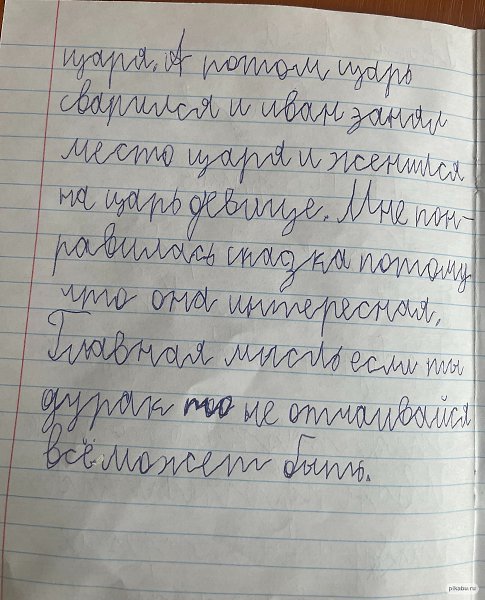 царя. А потом царь
сварился и иван занял
место царя и женился
на царь девице. Мне пон-
равилась сказка потому
что она интересная.
Главная мысль если ты
дурак то не отчаивайся
всё может быть.
pikabu.ru